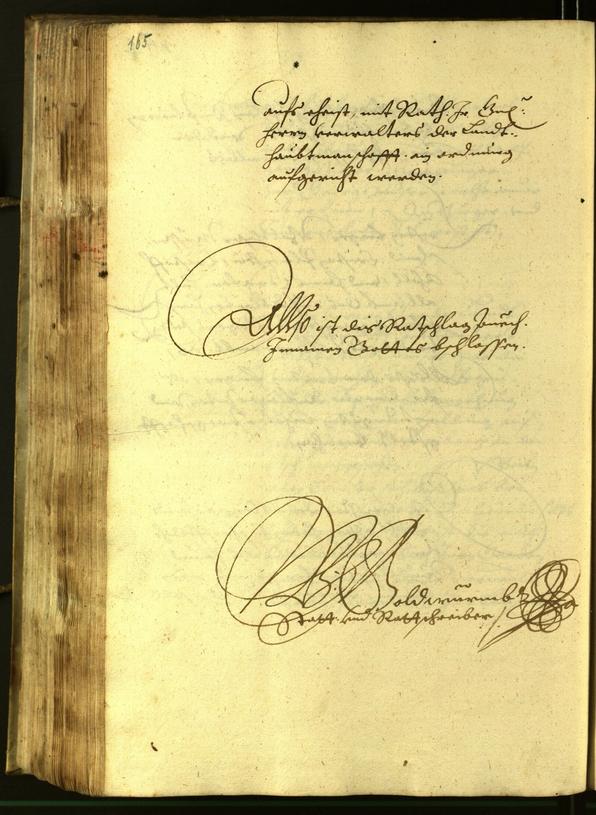 165
aufs ehist, mit Rath Ir Gn:
herrn verwalters der Landt-
haubtmanschafft ain ordnung
aufgericht werden.
Allso ist dis Ratschlag
Innamen Gottes bschlossen.
W: Goldwurmb
Statt und Rattschreiber